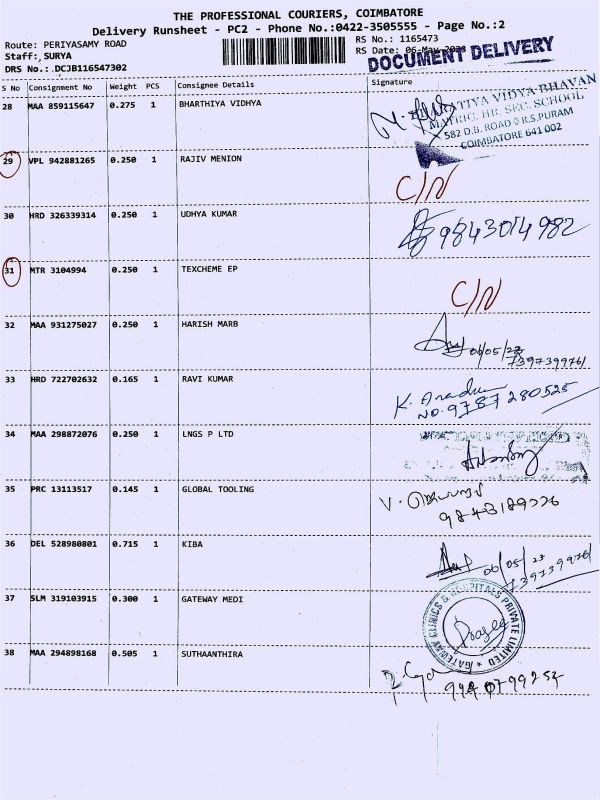 THE PROFESSIONAL COURIERS, COIMBATORE
Delivery Runsheet - PC2 - Phone No.:0422-3505555 - Page No.:2
Route: PERIYASAMY ROAD RS No.: 1165473
Staff: SURYA RS Date: 06-May-2023
DRS No.: DCJB116547302 DOCUMENT DELIVERY
S No Consignment No Weight PCS Consignee Details Signature
28 MAA 859115647 0.275 1 BHARTHIYA VIDHYA
BHARATIYA VIDYA BHAVAN
MATRIC. HR. SEC. SCHOOL
582 D.B. ROAD R.S.PURAM
COIMBATORE 641 002
29 VPL 942881265 0.250 1 RAJIV MENION
C/N
30 HRD 326339314 0.250 1 UDHYA KUMAR
9843014982
31 MTR 3104994 0.250 1 TEXCHEME EP
C/N
32 MAA 931275027 0.250 1 HARISH MARB
06/05/23
739739976/
33 HRD 722702632 0.165 1 RAVI KUMAR
K.
NO. 9787 280525
34 MAA 298872076 0.250 1 LNGS P LTD
35 PRC 13113517 0.145 1 GLOBAL TOOLING
V.
36 DEL 528980801 0.715 1 KIBA
06/05/23
739739976/
37 SLM 319103915 0.300 1 GATEWAY MEDI
GATEWAY CLINICS & HOSPITALS PRIVATE LIMITED
38 MAA 294898168 0.505 1 SUTHAANTHIRA